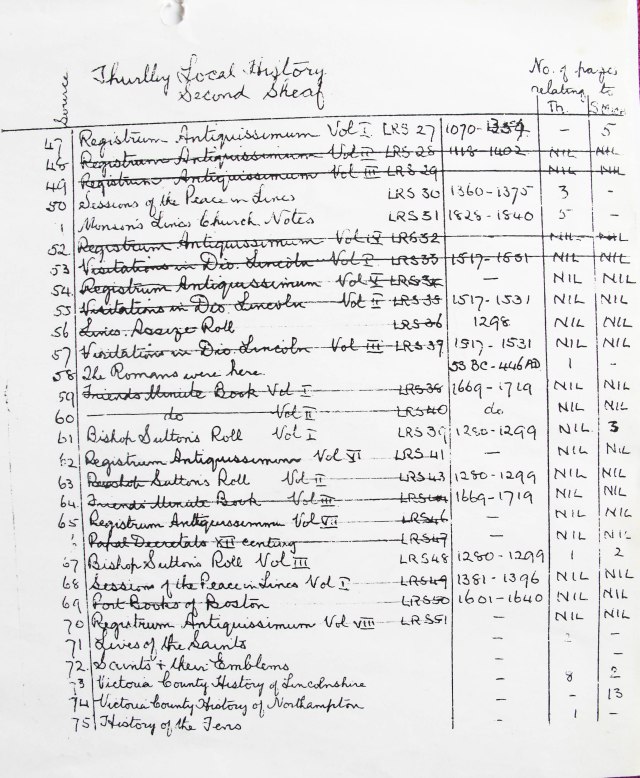 Thurlby Local History
Second Sheaf
Source
No. of pages
relating to
Th.
47 Registrum Antiquissimum Vol I LRS 27 1070- - 5
48 Registrum Antiquissimum Vol II LRS 28 1118-1402 NIL NIL
49 Registrum Antiquissimum Vol III LRS 29
50 Sessions of the Peace in Lincs LRS 30 1360-1375 3 -
1 Monson's Lincs Church Notes LRS 31 1828-1840 5 -
52 Registrum Antiquissimum Vol IV LRS 32 - NIL NIL
53 Visitations in Dio. Lincoln Vol I LRS 33 1517-1531 NIL NIL
54 Registrum Antiquissimum Vol V LRS 34 - NIL NIL
55 Visitations in Dio. Lincoln Vol II LRS 35 1517-1531 NIL NIL
56 Lincs. Assize Roll LRS 36 1298 NIL NIL
57 Visitations in Dio. Lincoln Vol III LRS 37 1517-1531 NIL NIL
58 The Romans were here. 53 BC-446 AD 1 -
59 Friends Minute Book Vol I LRS 38 1669-1719 NIL NIL
60 do Vol II LRS 40 do NIL NIL
61 Bishop Sutton's Roll Vol I LRS 39 1280-1299 NIL 3
62 Registrum Antiquissimum Vol VI LRS 41 - NIL NIL
63 Bishop Suttons Roll Vol II LRS 43 1280-1299 NIL NIL
64 Friends Minute Book Vol III LRS 1669-1719 NIL NIL
65 Registrum Antiquissimum Vol VII LRS 46 - NIL NIL
Papal Decretals XII century LRS 47 - NIL NIL
67 Bishop Suttons Roll Vol III LRS 48 1280-1299 1 2
68 Sessions of the Peace in Lincs Vol I LRS 49 1381-1396 NIL NIL
69 Port Books of Boston LRS 50 1601-1640 NIL NIL
70 Registrum Antiquissimum Vol VIII LRS 51 - NIL NIL
71 Lives of the Saints - 2 -
72 Saints + their Emblems - -
73 Victoria County History of Lincolnshire - 8 2
74 Victoria County History of Northampton - - 13
75 History of the Fens - 1 -